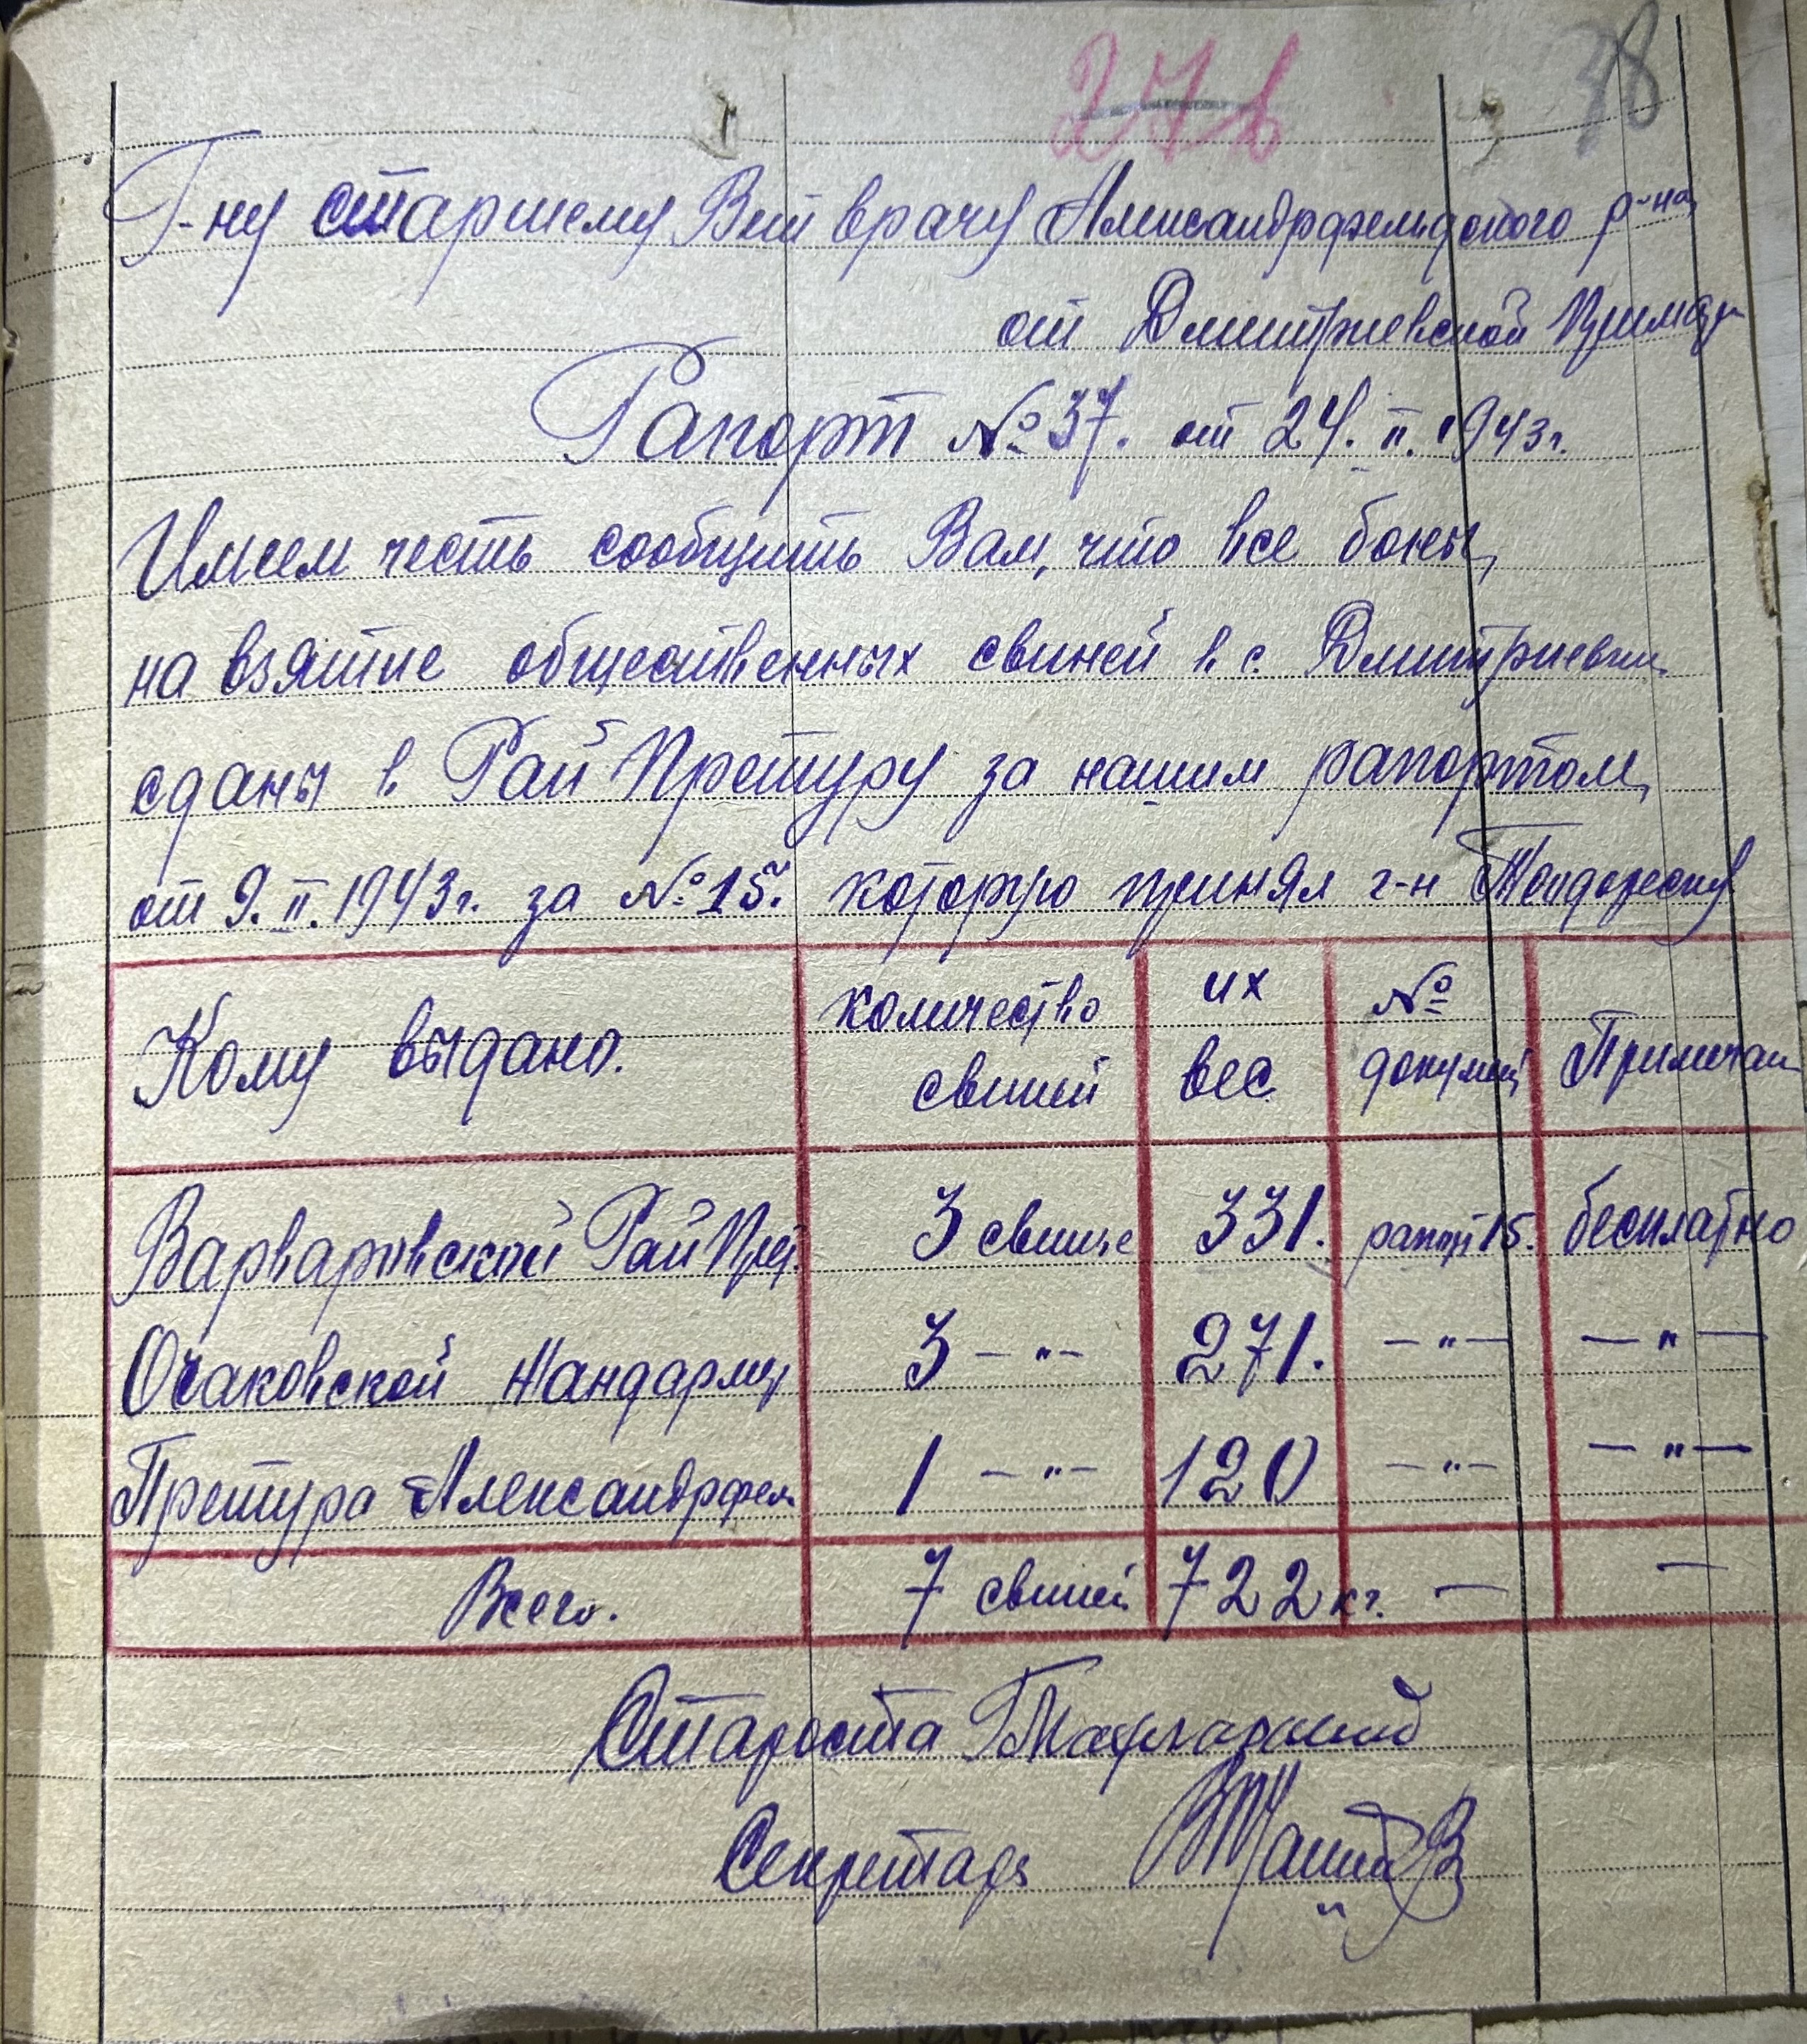 27в 38
Г-ну старшему Вет врачу Александрфельдского р-на
от Дмитриевской Примар
Рапорт № 37. от 24. II. 1943 г.
Имеем честь сообщить Вам, что все боны,
на взятие общественных свиней в с. Дмитриевки
сданы в Рай Претуру за нашим рапортом,
от 9. II. 1943 г. за № 15. которую принял г-н Теодореску
Кому выдано. количество свиней их вес № докумен Примечан
Варваровской Рай Прет. 3 свинье 331. рапорт 15. бесплатно
Очаковской Жандарму 3 -"- 271. -"- -"-
Претура Александрфел. 1 -"- 120 -"- -"-
Всего. 7 свиней 722 кг. - -
Староста
Секретарь